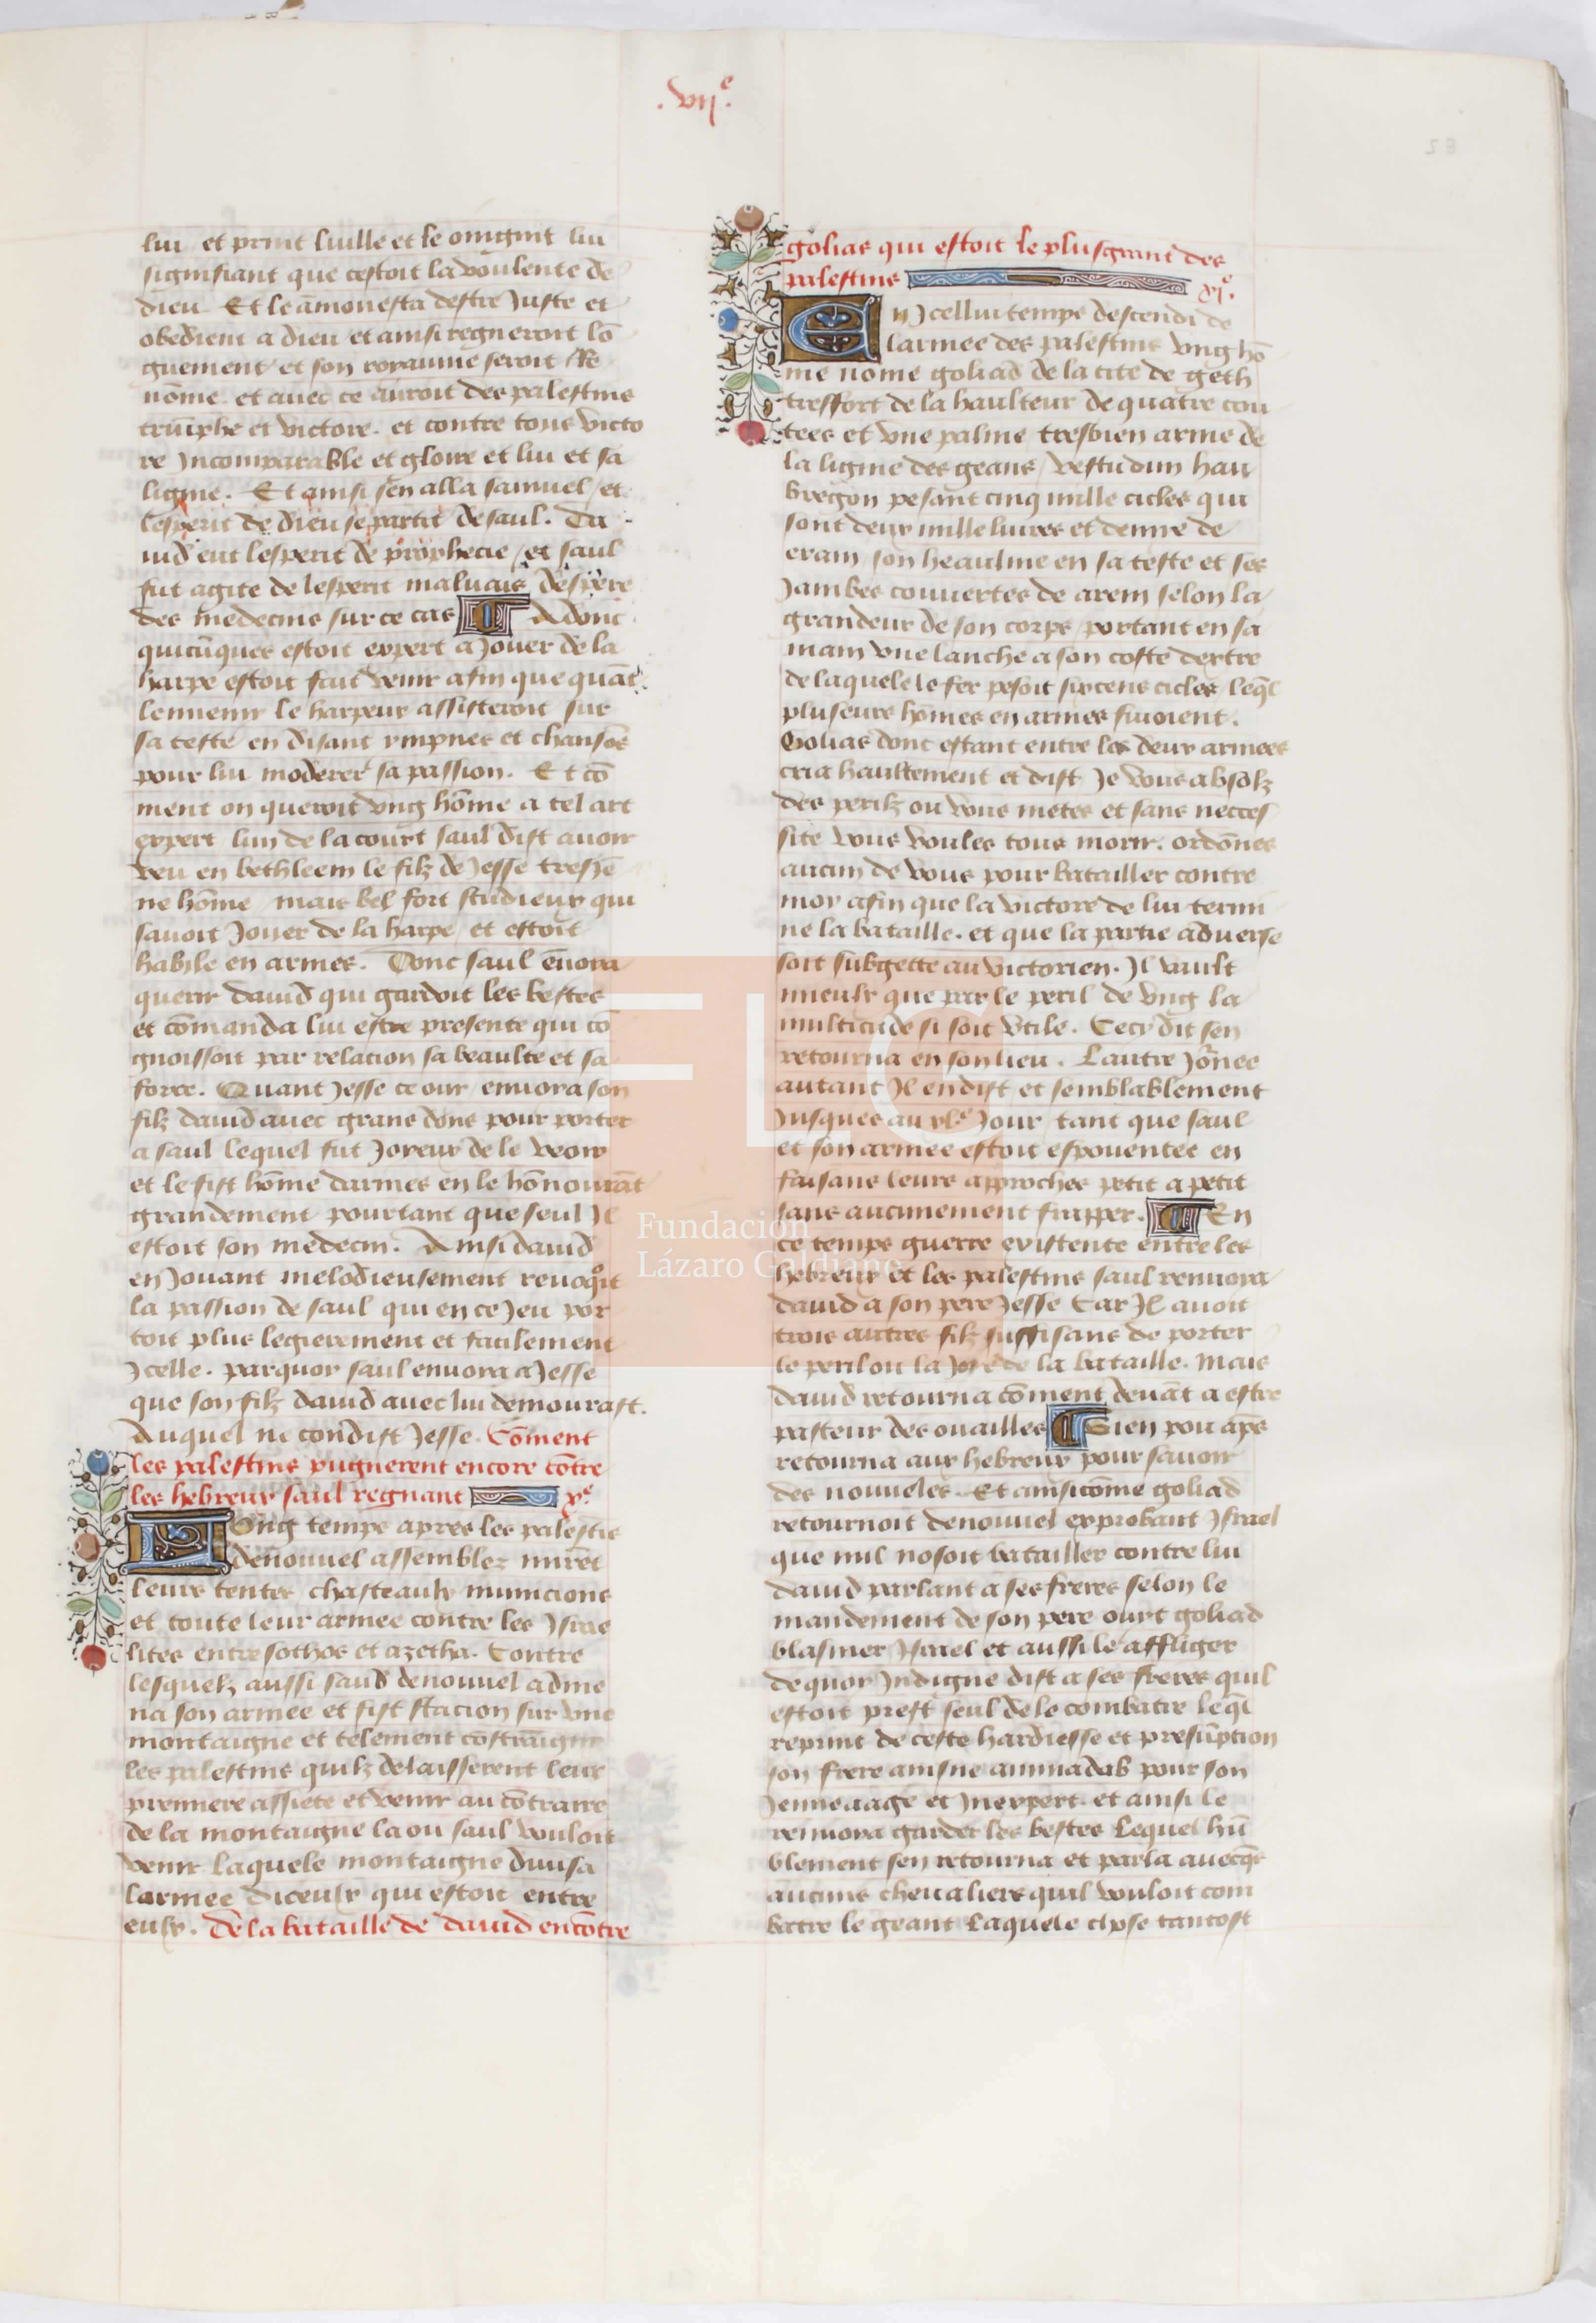 .vii.e
lui et print luille et le oingint lui
signifiant que cestoit la voulente de
dieu Et le āmonesta destre Juste et
obedient a dieu et ainsi regneroit lō
guement et son royaume seroit Re
nōme et auec ce auroit des palestins
triūphe et victore. et contre tous victo
re Incomparable et gloire et lui et sa
ligne. Et ainsi sen alla samuel et
lesperit de dieu se partit de saul. Da
uid eut lesperit de prophecie et saul
fut agite de lesperit maluais despere
des medecins sur ce cas Adonc
quicūques estoit expert a Jouer de la
harpe estoit fait venir afin que quāt
lennemi le harpeur assisteroit sur
sa teste en disant ympnes et chansōs
pour lui moderer sa passion. Et cō
ment on queroit vng hōme a tel art
expert lun de la court saul dist auoir
veu en bethleem le filz de Jesse tresJē
ne hōme mais bel fort studieux qui
sauoit Jouer de la harpe et estoit
habile en armes. Donc saul ēuoya
querir dauid qui gardoit les bestes
et cōmanda lui estre presente qui cō
gnoissoit par relacion sa beaulte et sa
force. Quant Jesse ce ouy enuoya son
filz dauid auec grans dons pour porter
a saul lequel fut Joyeux de le veoir
et le fist hōme darmes en le hōnourāt
grandement pourtant que seul Il
estoit son medecin. Ainsi dauid
en Jouant melodieusement reuoqoit
la passion de saul qui en ce Jeu por
toit plus legierement et facilement
Icelle. parquoy saul enuoya a Jesse
que son filz dauid auec lui demourast.
Auquel ne condist Jesse. Cōment
les palestins pugnerent encore cōtre
les hebreux saul regnant x.e
Long temps apres les palestīs
denouuel assemblez mirēt
leurs tentes chasteaulx municions
et toute leur armee contre les Israe
lites entre sothos et azetha. Contre
lesquelz aussi saul denouuel adme
na son armee et fist stacion sur vne
montaigne et telement cōstraigni
les palestins quilz delaisserent leur
premiere assiete et venir au cōtraire
de la montaigne la ou saul vouloit
venir laquele montaigne diuisa
larmee diceulx qui estoit entre
eulx. De la bataille de dauid encōtre
golias qui estoit le plus grant des
palestins xi.e
En Icellui temps descendi de
larmee des palestins vng hō
me nome goliad de la cite de geth
tresfort de la haulteur de quatre cou
tees et vne palme tresbien arme de
la ligne des geans vestu dun hau
bregon pesant cinq mille cicles qui
sont deux mille liures et demie de
eram son heaulme en sa teste et ses
Jambes couuertes de arem selon la
grandeur de son corps portant en sa
main vne lanche a son coste dextre
de laquele le fer pesoit sixcens cicles leql
pluseurs hōmes en armes suioient.
Golias donc estant entre les deux armees
cria haultement et dist Je vous absolz
des perilz ou vous metes et sans necces
site vous voules tous morir. ordōnes
aucun de vous pour batailler contre
moy afin que la victore de lui termi
ne la bataille. et que la partie aduerse
soit subgette au victorien. Il vault
mieulx que par le peril de vng la
multitude si soit vtile. Cecy dit sen
retourna en son lieu. Lautre Jōnee
autant Il en dist et semblablement
Jusques au xl.e Jour tant que saul
et son armee estoit espouentee en
faisans leurs approches petit a petit
sans aucunement frapper. En
ce temps guerre existente entre les
hebreux et les palestins saul renuoya
dauid a son pere Jesse Car Il auoit
trois autres filz suffisans de porter
le peril ou la Joye de la bataille. Mais
dauid retourna cōment deuāt a estre
pasteur des ouailles Bien pou aps
retourna aux hebreux pour sauoir
des nouueles. Et ainsi cōme goliad
retournoit denouuel exprobant Israel
que nul nosoit batailler contre lui
dauid parlant a ses freres selon le
mandement de son pere ouyt goliad
blasmer Israel et aussi le affliger
de quoy Indigne dist a ses freres quil
estoit prest seul de le combatre leql
reprint de ceste hardiesse et presūption
son frere ainsne aminadab pour son
Jenne aage et Inexpert. et ainsi le
renuoya garder les bestes Lequel hū
blement sen retourna et parla auecqs
aucuns cheualiers quil vouloit com
batre le geant Laquele chose tantost
Fundación
Lázaro Galdiano
FLG